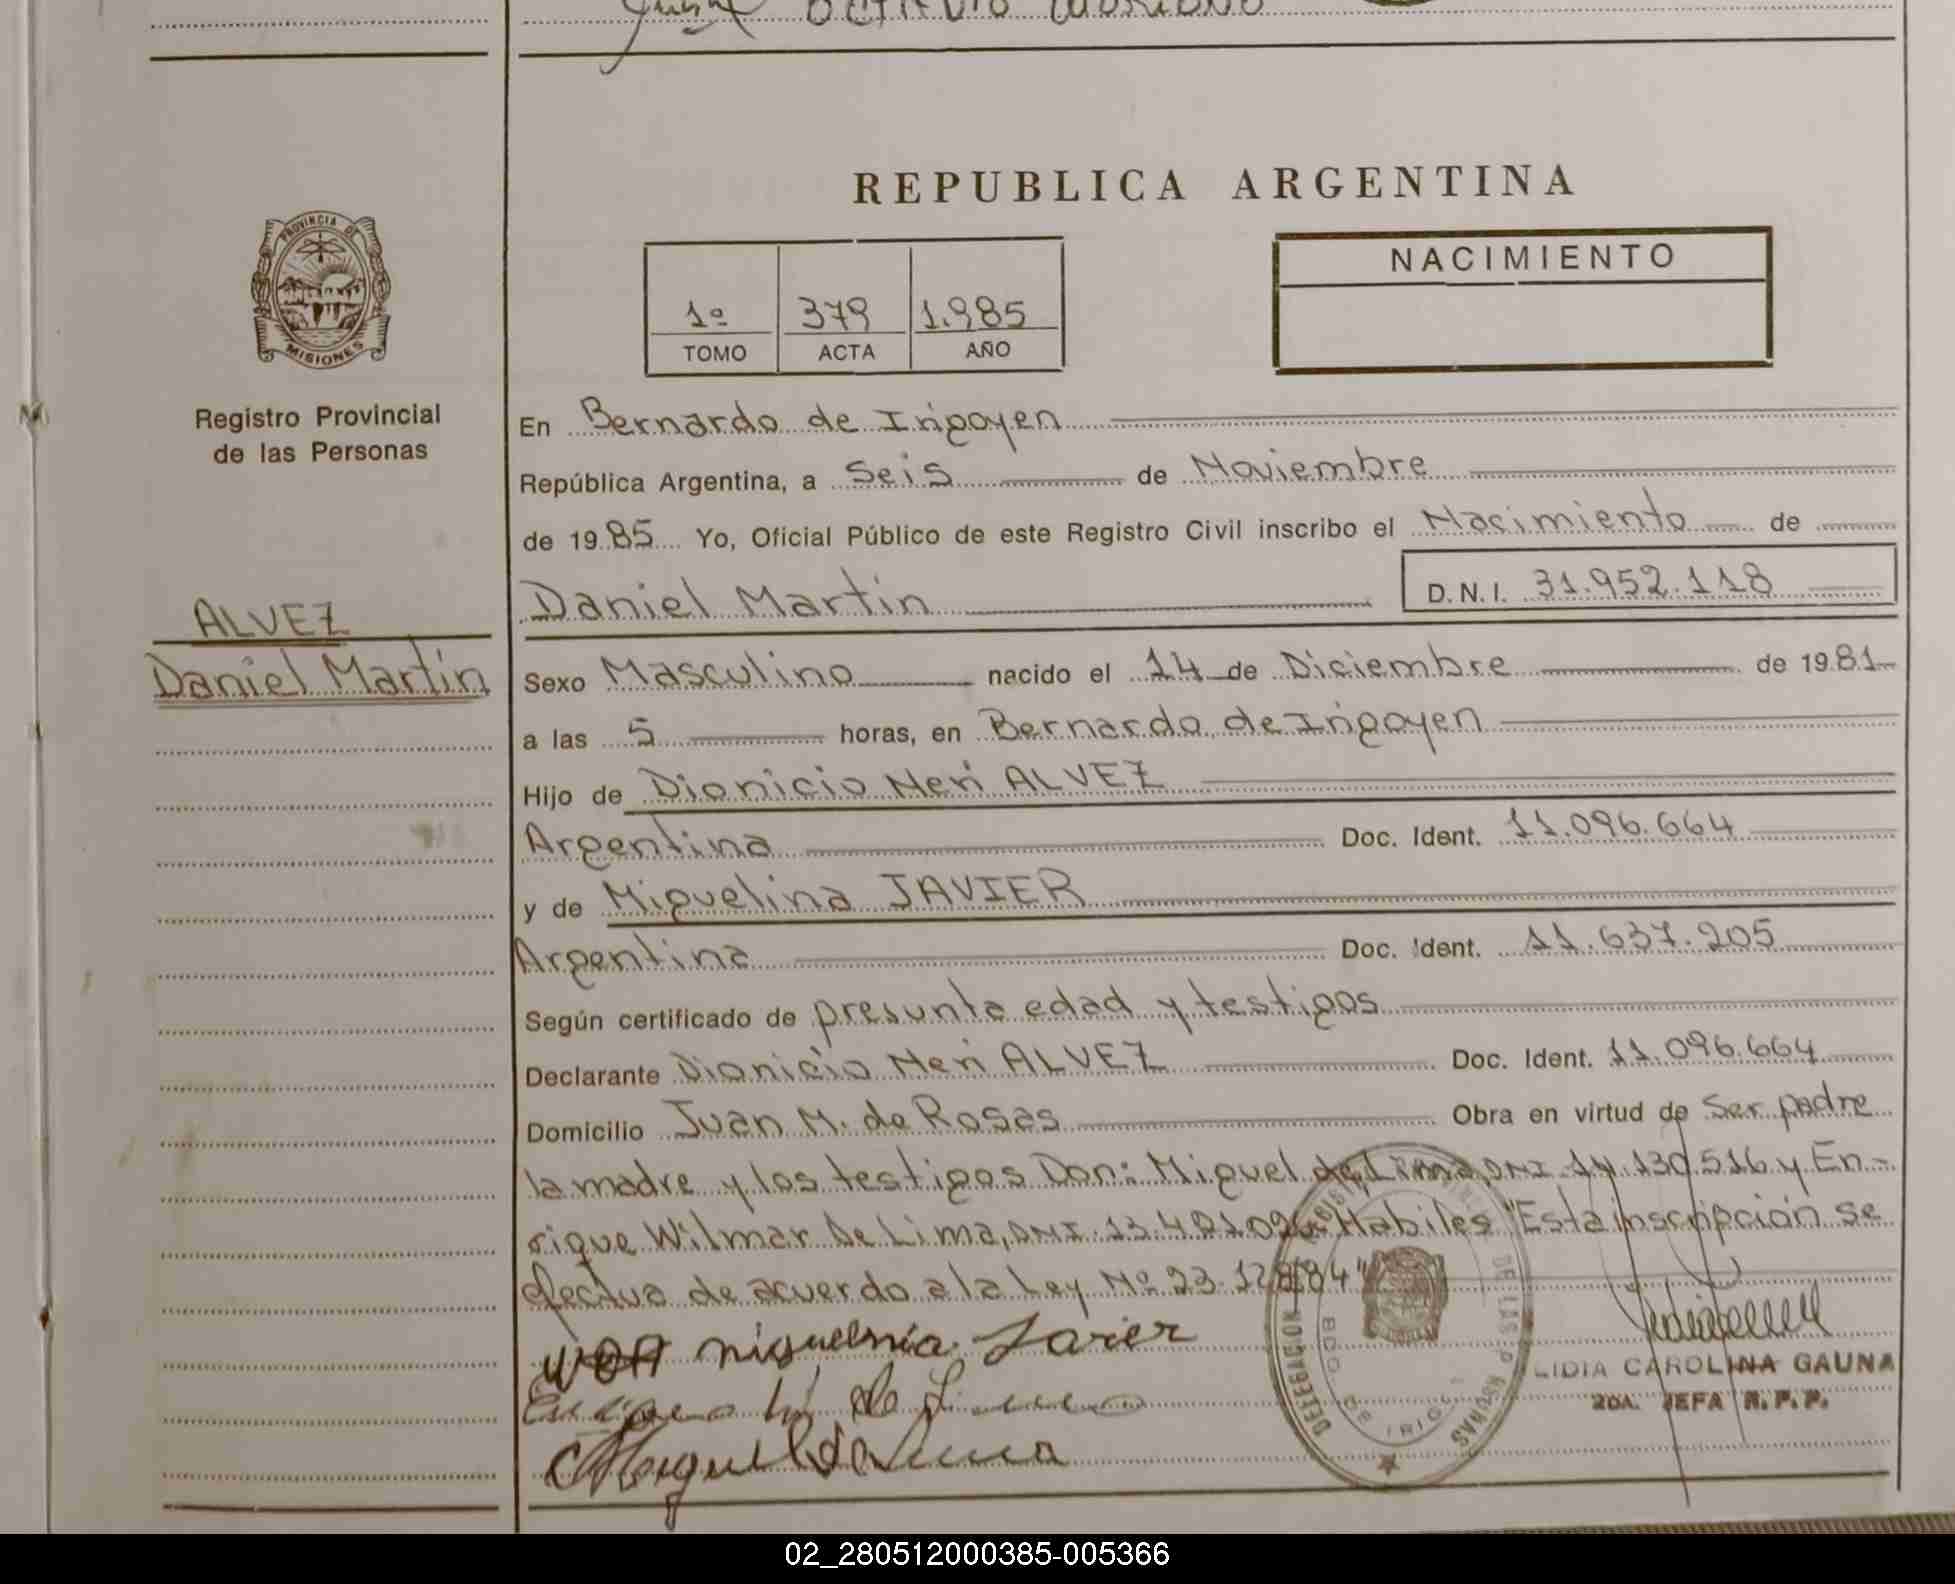 OCTAVIO
REPUBLICA ARGENTINA
PROVINCIA DE
MISIONES
NACIMIENTO
1º 379 1.985
TOMO ACTA AÑO
Registro Provincial
de las Personas
En Bernardo de Irigoyen
República Argentina, a Seis de Noviembre
de 1985 Yo, Oficial Público de este Registro Civil inscribo el Nacimiento de
Daniel Martin D.N.I. 31.952.118
ALVEZ
Daniel Martin
Sexo Masculino nacido el 14 de Diciembre de 1981
a las 5 horas, en Bernardo de Irigoyen
Hijo de Dionicio Neri ALVEZ
Argentina Doc. Ident. 11.096.664
y de Miguelina JAVIER
Argentina Doc. Ident. 11.637.205
Según certificado de presunta edad y testigos
Declarante Dionicio Neri ALVEZ Doc. Ident. 11.096.664
Domicilio Juan M. de Rosas Obra en virtud de Ser padre
la madre y los testigos Don: Miguel de Lima, DNI. 14.130.516 y En-
rique Wilmar De Lima, DNI. Habiles "Esta inscripción se
efectua de acuerdo a la Ley Nº 23.128/84"
miguelnia Javier
Miguel de Lima
DELEGACION
BDO DE IRIGO
DE LAS PERSONAS
LIDIA CAROLINA GAUNA
2DA. JEFA R.P.P.
02_280512000385-005366